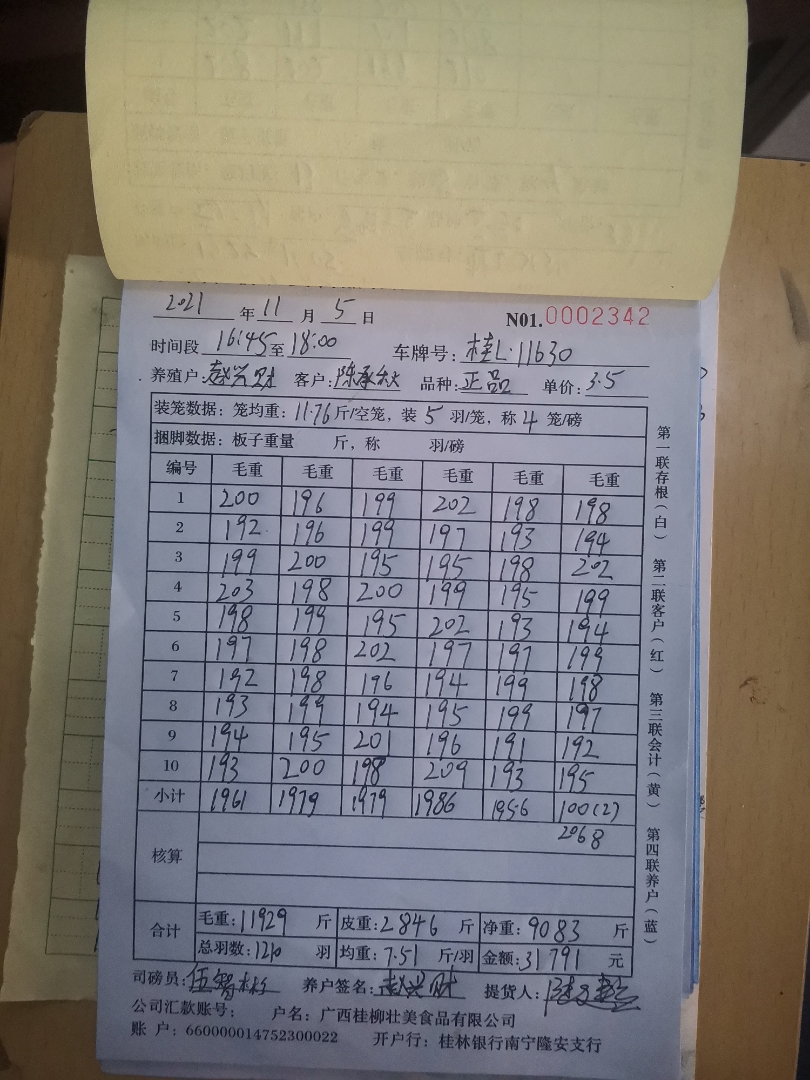 2021 年 11 月 5 日 N01.0002342
时间段 16:45 至 18:00 车牌号: 桂L·11630
养殖户: 赵兴财 客户: 陈承秋 品种: 正品 单价: 3.5
装笼数据: 笼均重: 11.76 斤/空笼, 装 5 羽/笼, 称 4 笼/磅
捆脚数据: 板子重量 斤, 称 羽/磅
编号 毛重 毛重 毛重 毛重 毛重 毛重
1 200 196 199 202 198 198
2 192 196 199 197 193 194
3 199 200 195 195 198 202
4 203 198 200 199 195 199
5 198 199 195 202 193 194
6 197 198 202 197 197 199
7 192 198 196 194 199 198
8 193 199 194 195 199 197
9 194 195 201 196 191 192
10 193 200 198 209 193 195
小计 1961 1979 1979 1986 1956 100(2)
2068
核算
合计 毛重: 11929 斤 皮重: 2846 斤 净重: 9083 斤
总羽数: 1210 羽 均重: 7.51 斤/羽 金额: 31791 元
司磅员: 伍智彬 养户签名: 赵兴财 提货人:
公司汇款账号: 户名: 广西桂柳壮美食品有限公司
账 户: 660000014752300022 开户行: 桂林银行南宁隆安支行
第一联存根(白) 第二联客户(红) 第三联会计(黄) 第四联养户(蓝)